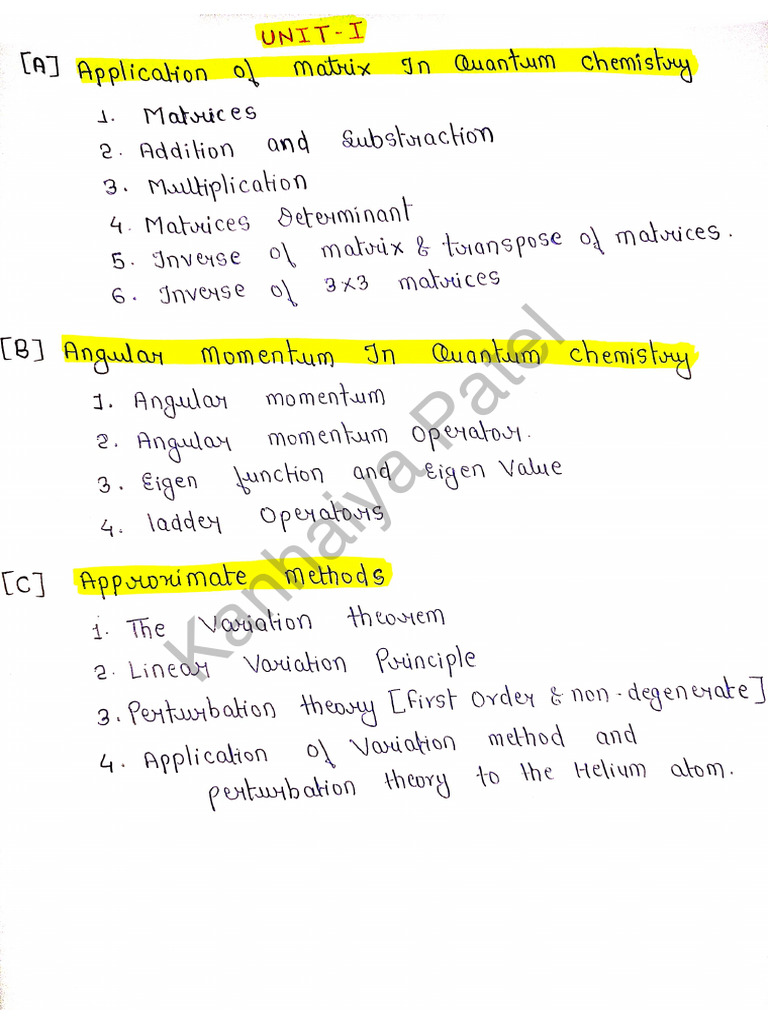 UNIT-I
[A] Application of matrix In Quantum chemistry
1. Matrices
2. Addition and Substraction
3. Multiplication
4. Matrices Determinant
5. Inverse of matrix & transpose of matrices.
6. Inverse of 3x3 matrices
[B] Angular Momentum In Quantum chemistry
1. Angular momentum
2. Angular momentum Operator.
3. Eigen function and Eigen Value
4. ladder Operators
[C] Approximate Methods
1. The Variation theorem
2. Linear Variation Principle
3. Perturbation theory [First Order & non-degenerate]
4. Application of Variation method and
perturbation theory to the Helium atom.
Kanhaiya Patel